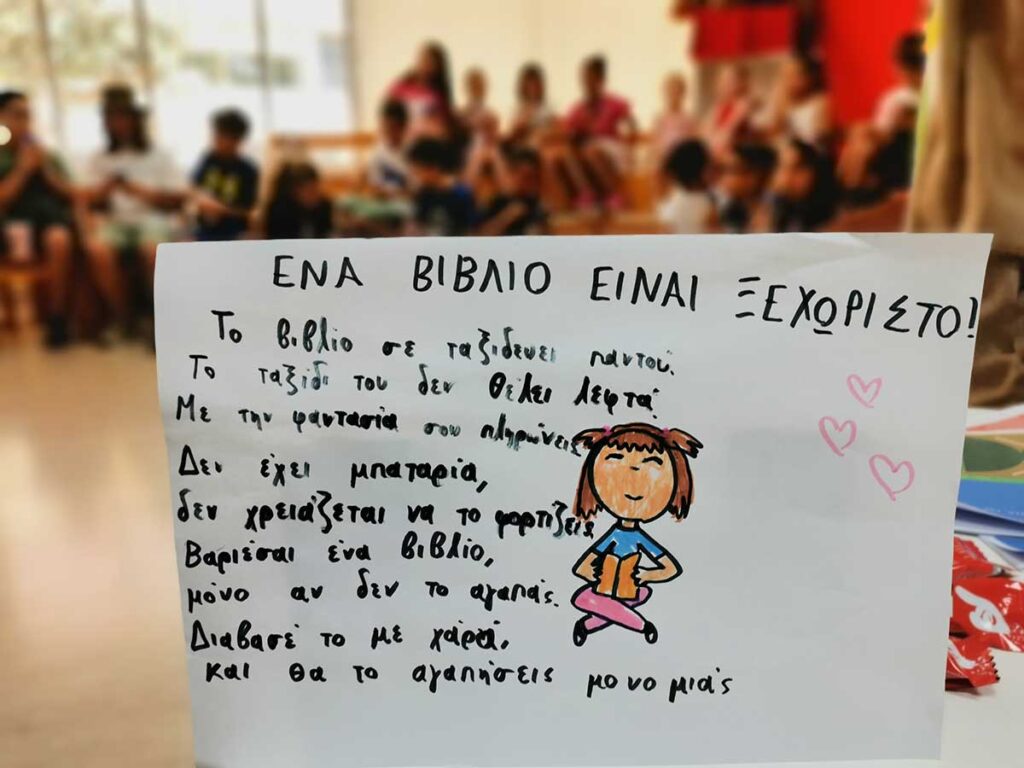 ΕΝΑ ΒΙΒΛΙΟ ΕΙΝΑΙ ΞΕΧΩΡΙΣΤΟ!
Το βιβλίο σε ταξιδεύει παντού.
Το ταξίδι του δεν θέλει λεφτά.
Με την φαντασία σου πληρώνεις
Δεν έχει μπαταρία,
δεν χρειάζεται να το φορτίζεις
Βαριέσαι ένα βιβλίο,
μόνο αν δεν το αγαπάς.
Διαβασέ το με χάρά,
και θα το αγαπήσεις μονομιάς